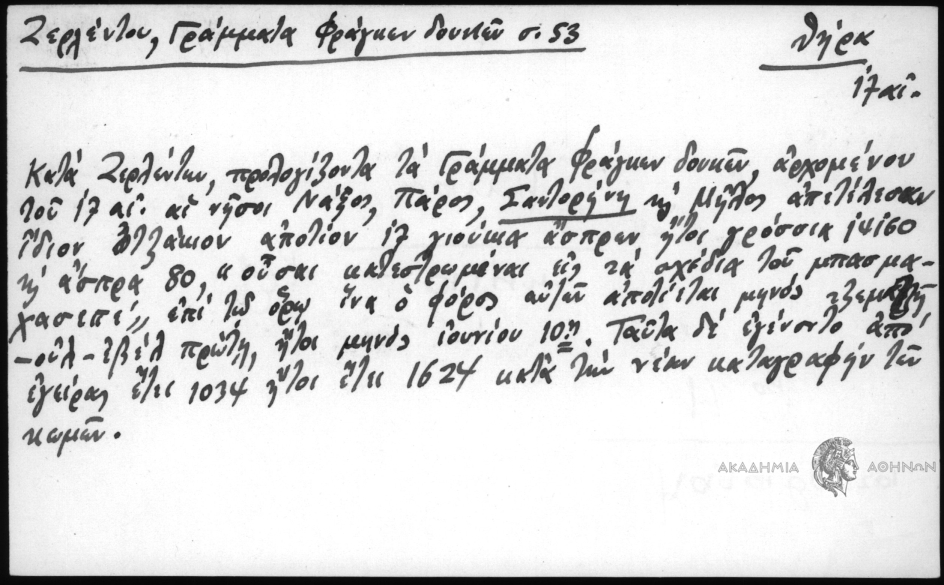 Ζερλέντου, Γράμματα Φράγκων δουκῶν σ. 53
Θήρα
17 αἰ.
Κατά Ζερλέντην, προλογίζοντα τά Γράμματα Φράγκων δουκῶν, ἀρχομένου
τοῦ 17 αἰ. αἱ νῆσοι Νάξος, Πάρος, Σαντορήνη κ Μῆλος ἀπετέλεσαν
ἴδιον ἀποτῖον 17 γιούκια ἄσπρων ἤτοι γρόσσια 14160
κ ἄσπρα 80, οὖσαι κατεστρωμέναι εἰς τά σχέδια τοῦ μπασμα-
χασιπέ,, ἐπί τῷ ὅρῳ ἵνα ὁ φόρος αὐτῶν ἀποτίεται μηνός
-οὐλ-ἐβέλ πρώτῃ, ἤτοι μηνός ἰουνίου 10ῃ. Ταῦτα δέ ἐγένοντο ἀπό
ἐγείρας ἔτει 1034 ἤτοι ἔτει 1624 κατά τήν νέαν καταγραφήν τῶν
κωμῶν.
ΑΚΑΔΗΜΙΑ ΑΘΗΝΩΝ